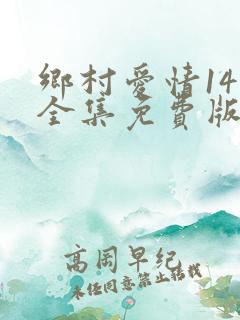 鄉村愛情14
全集免費版
高周早纪
未经同意禁止转载